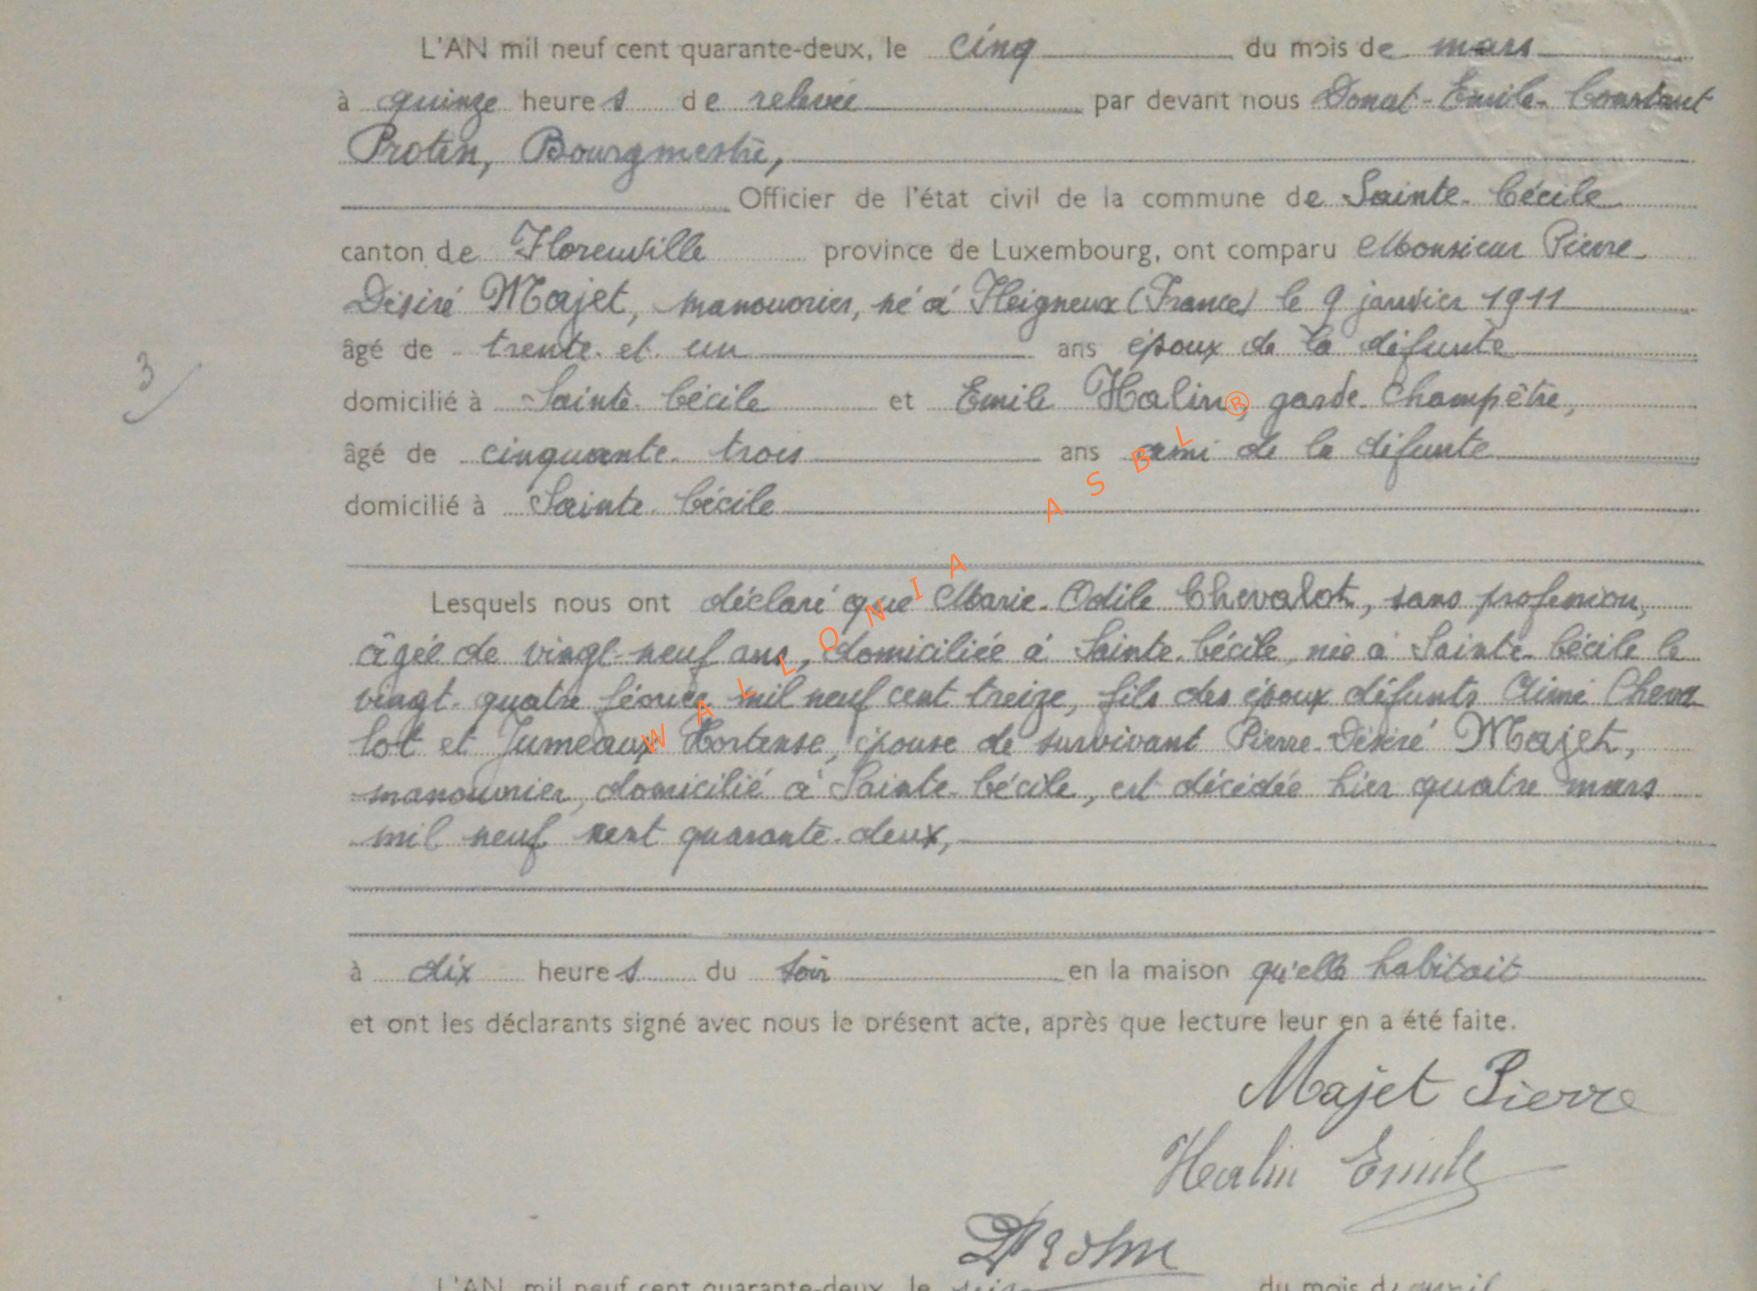 L'AN mil neuf cent quarante-deux, le cinq du mois de mars
à quinze heures de relevée par devant nous Donat-Emile-Constant
Protin, Bourgmestre,
Officier de l'état civil de la commune de Sainte-Cécile
canton de Florenville province de Luxembourg, ont comparu Monsieur Pierre-
Désiré Majet, manouvrier, né à Fleigneux (France) le 9 janvier 1911
âgé de trente-et-un ans époux de la défunte
3/ domicilié à Sainte-Cécile et Emile Halin, garde-Champêtre,
âgé de cinquante-trois ans ami de la défunte
domicilié à Sainte-Cécile
Lesquels nous ont déclaré que Marie-Odile Chevalot, sans profession,
âgée de vingt-neuf ans, domiciliée à Sainte-Cécile, née à Sainte-Cécile le
vingt-quatre février mil neuf cent treize, fils des époux défunts Aimé Cheva
lot et Jumeaux Hortense, épouse de survivant Pierre-Désiré Majet,
manouvrier, domicilié à Sainte-Cécile, est décédée hier quatre mars
mil neuf cent quarante-deux,
à dix heures du soir en la maison qu'elle habitait
et ont les déclarants signé avec nous le présent acte, après que lecture leur en a été faite.
Majet Pierre
Halin Emile
L'AN mil neuf cent quarante-deux, le du mois d avril
WALLONIA ASBL ®